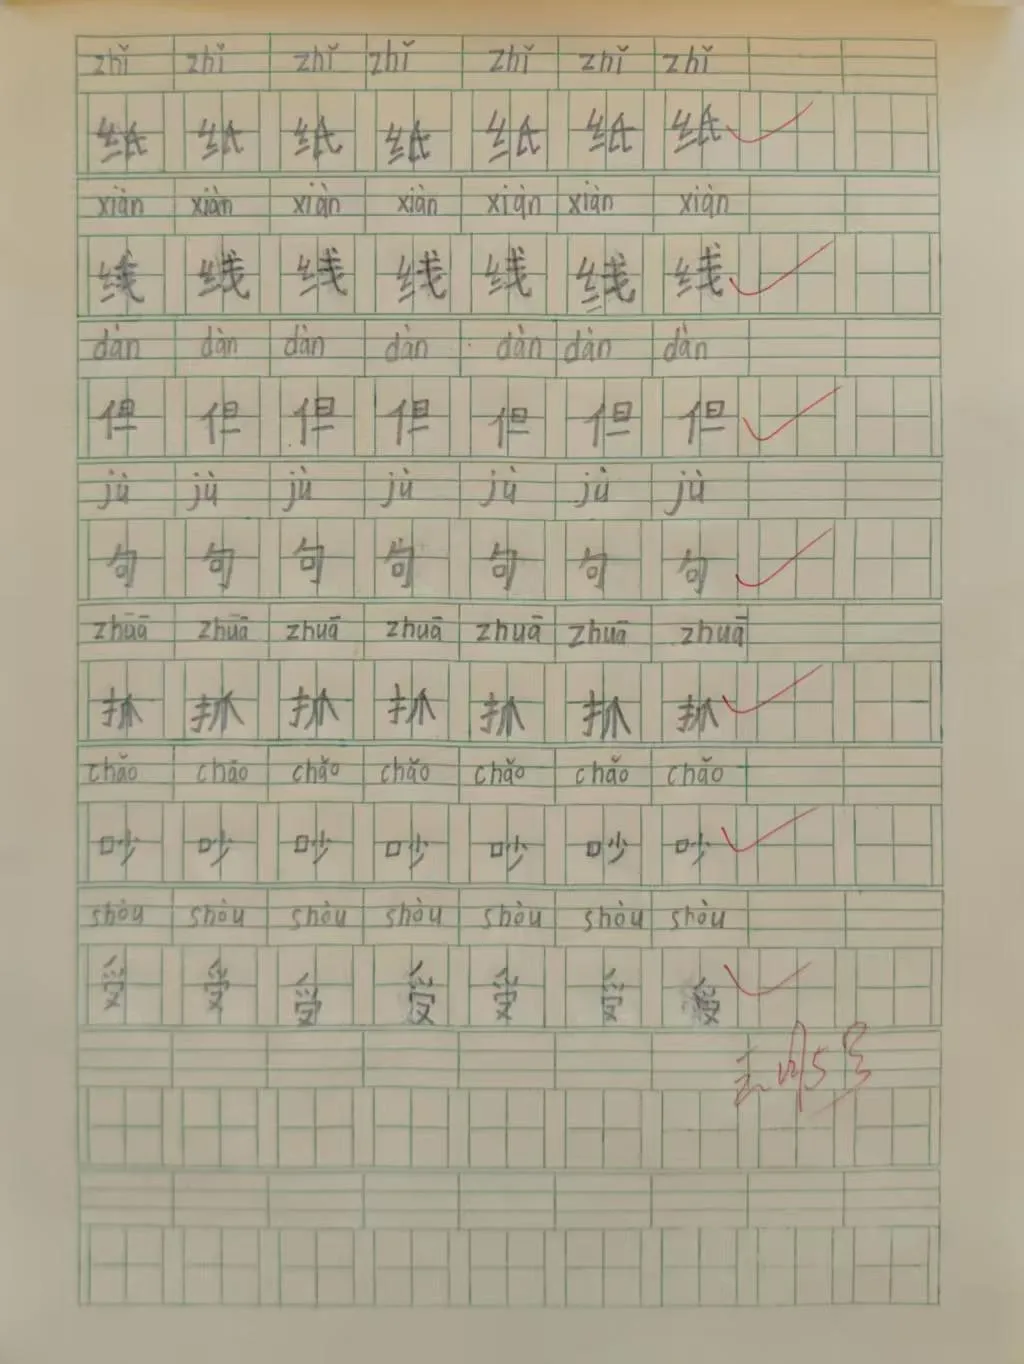 zhǐ zhǐ zhǐ zhǐ zhǐ zhǐ zhǐ
纸 纸 纸 纸 纸 纸 纸
xiàn xiàn xiàn xiàn xiàn xiàn xiàn
线 线 线 线 线 线 线
dàn dàn dàn dàn dàn dàn dàn
但 但 但 但 但 但 但
jù jù jù jù jù jù jù
句 句 句 句 句 句 句
zhuā zhuā zhuā zhuā zhuā zhuā zhuā
抓 抓 抓 抓 抓 抓 抓
chǎo chǎo chǎo chǎo chǎo chǎo chǎo
吵 吵 吵 吵 吵 吵 吵
shòu shòu shòu shòu shòu shòu shòu
受 受 受 受 受 受 受